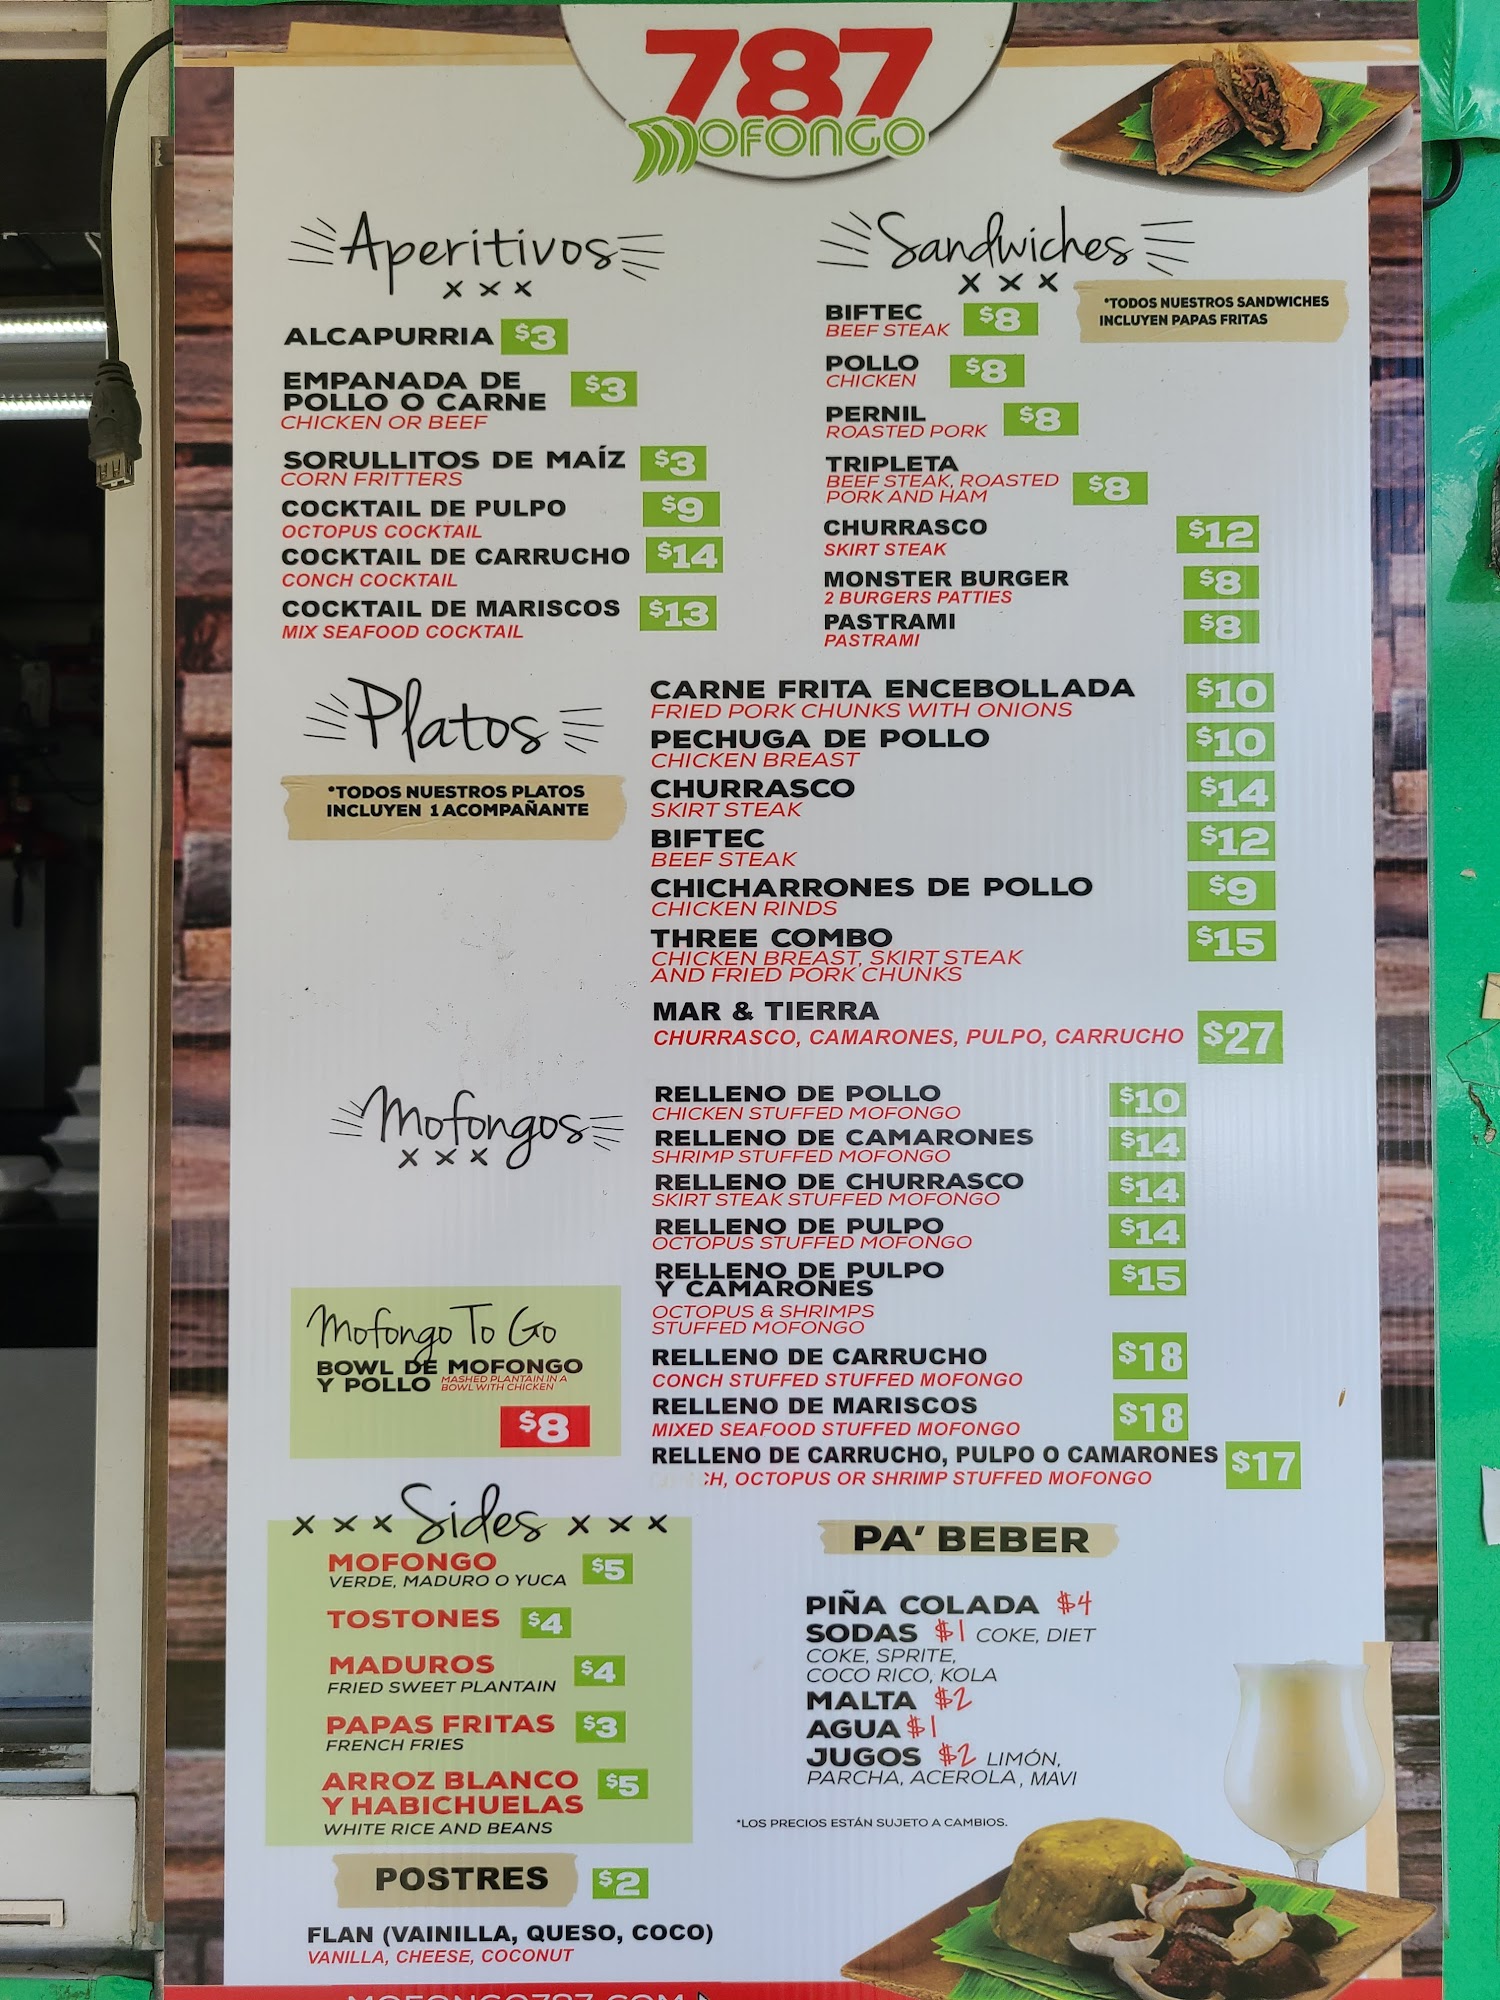 787
MOFONGO
Aperitivos
x x x
ALCAPURRIA $3
EMPANADA DE
POLLO O CARNE $3
CHICKEN OR BEEF
SORULLITOS DE MAÍZ $3
CORN FRITTERS
COCKTAIL DE PULPO $9
OCTOPUS COCKTAIL
COCKTAIL DE CARRUCHO $14
CONCH COCKTAIL
COCKTAIL DE MARISCOS $13
MIX SEAFOOD COCKTAIL
Sandwiches
x x x
*TODOS NUESTROS SANDWICHES
INCLUYEN PAPAS FRITAS
BIFTEC $8
BEEF STEAK
POLLO $8
CHICKEN
PERNIL $8
ROASTED PORK
TRIPLETA
BEEF STEAK, ROASTED
PORK AND HAM $8
CHURRASCO $12
SKIRT STEAK
MONSTER BURGER $8
2 BURGERS PATTIES
PASTRAMI $8
PASTRAMI
Platos
*TODOS NUESTROS PLATOS
INCLUYEN 1 ACOMPAÑANTE
CARNE FRITA ENCEBOLLADA $10
FRIED PORK CHUNKS WITH ONIONS
PECHUGA DE POLLO $10
CHICKEN BREAST
CHURRASCO $14
SKIRT STEAK
BIFTEC $12
BEEF STEAK
CHICHARRONES DE POLLO $9
CHICKEN RINDS
THREE COMBO $15
CHICKEN BREAST, SKIRT STEAK
AND FRIED PORK CHUNKS
MAR & TIERRA
CHURRASCO, CAMARONES, PULPO, CARRUCHO $27
Mofongos
x x x
RELLENO DE POLLO $10
CHICKEN STUFFED MOFONGO
RELLENO DE CAMARONES $14
SHRIMP STUFFED MOFONGO
RELLENO DE CHURRASCO $14
SKIRT STEAK STUFFED MOFONGO
RELLENO DE PULPO $14
OCTOPUS STUFFED MOFONGO
RELLENO DE PULPO
Y CAMARONES $15
OCTOPUS & SHRIMPS
STUFFED MOFONGO
RELLENO DE CARRUCHO $18
CONCH STUFFED STUFFED MOFONGO
RELLENO DE MARISCOS $18
MIXED SEAFOOD STUFFED MOFONGO
RELLENO DE CARRUCHO, PULPO O CAMARONES $17
CH, OCTOPUS OR SHRIMP STUFFED MOFONGO
Mofongo To Go
BOWL DE MOFONGO
Y POLLO MASHED PLANTAIN IN A
BOWL WITH CHICKEN
$8
x x x Sides x x x
MOFONGO $5
VERDE, MADURO O YUCA
TOSTONES $4
MADUROS $4
FRIED SWEET PLANTAIN
PAPAS FRITAS $3
FRENCH FRIES
ARROZ BLANCO $5
Y HABICHUELAS
WHITE RICE AND BEANS
POSTRES $2
FLAN (VAINILLA, QUESO, COCO)
VANILLA, CHEESE, COCONUT
PA' BEBER
PIÑA COLADA $4
SODAS $1 COKE, DIET
COKE, SPRITE,
COCO RICO, KOLA
MALTA $2
AGUA $1
JUGOS $2 LIMÓN,
PARCHA, ACEROLA, MAVI
*LOS PRECIOS ESTÁN SUJETO A CAMBIOS.
MOFONGO787.COM